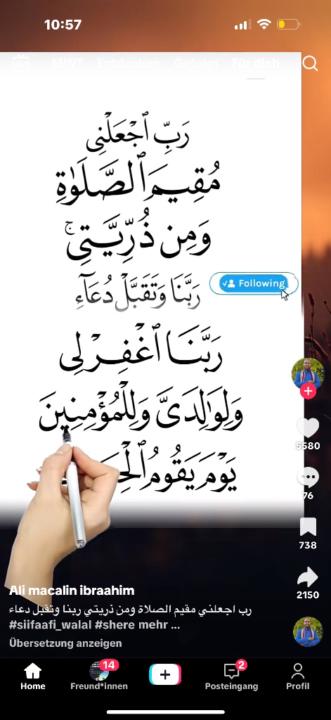 10:57
رَبِّ ٱجْعَلْنِى
مُقِيمَ ٱلصَّلَوٰةِ
وَمِن ذُرِّيَّتِى ۚ
رَبَّنَا وَتَقَبَّلْ دُعَآءِ
Following
رَبَّنَا ٱغْفِرْ لِى
وَلِوَٰلِدَىَّ وَلِلْمُؤْمِنِينَ
يَوْمَ يَقُومُ
5580
76
738
2150
Ali macalin ibraahim
رب اجعلني مقيم الصلاة ومن ذريتي ربنا وتقبل دعاء
#siifaafi_walal #shere mehr ...
Übersetzung anzeigen
Home
14
Freund*innen
2
Posteingang
Profil